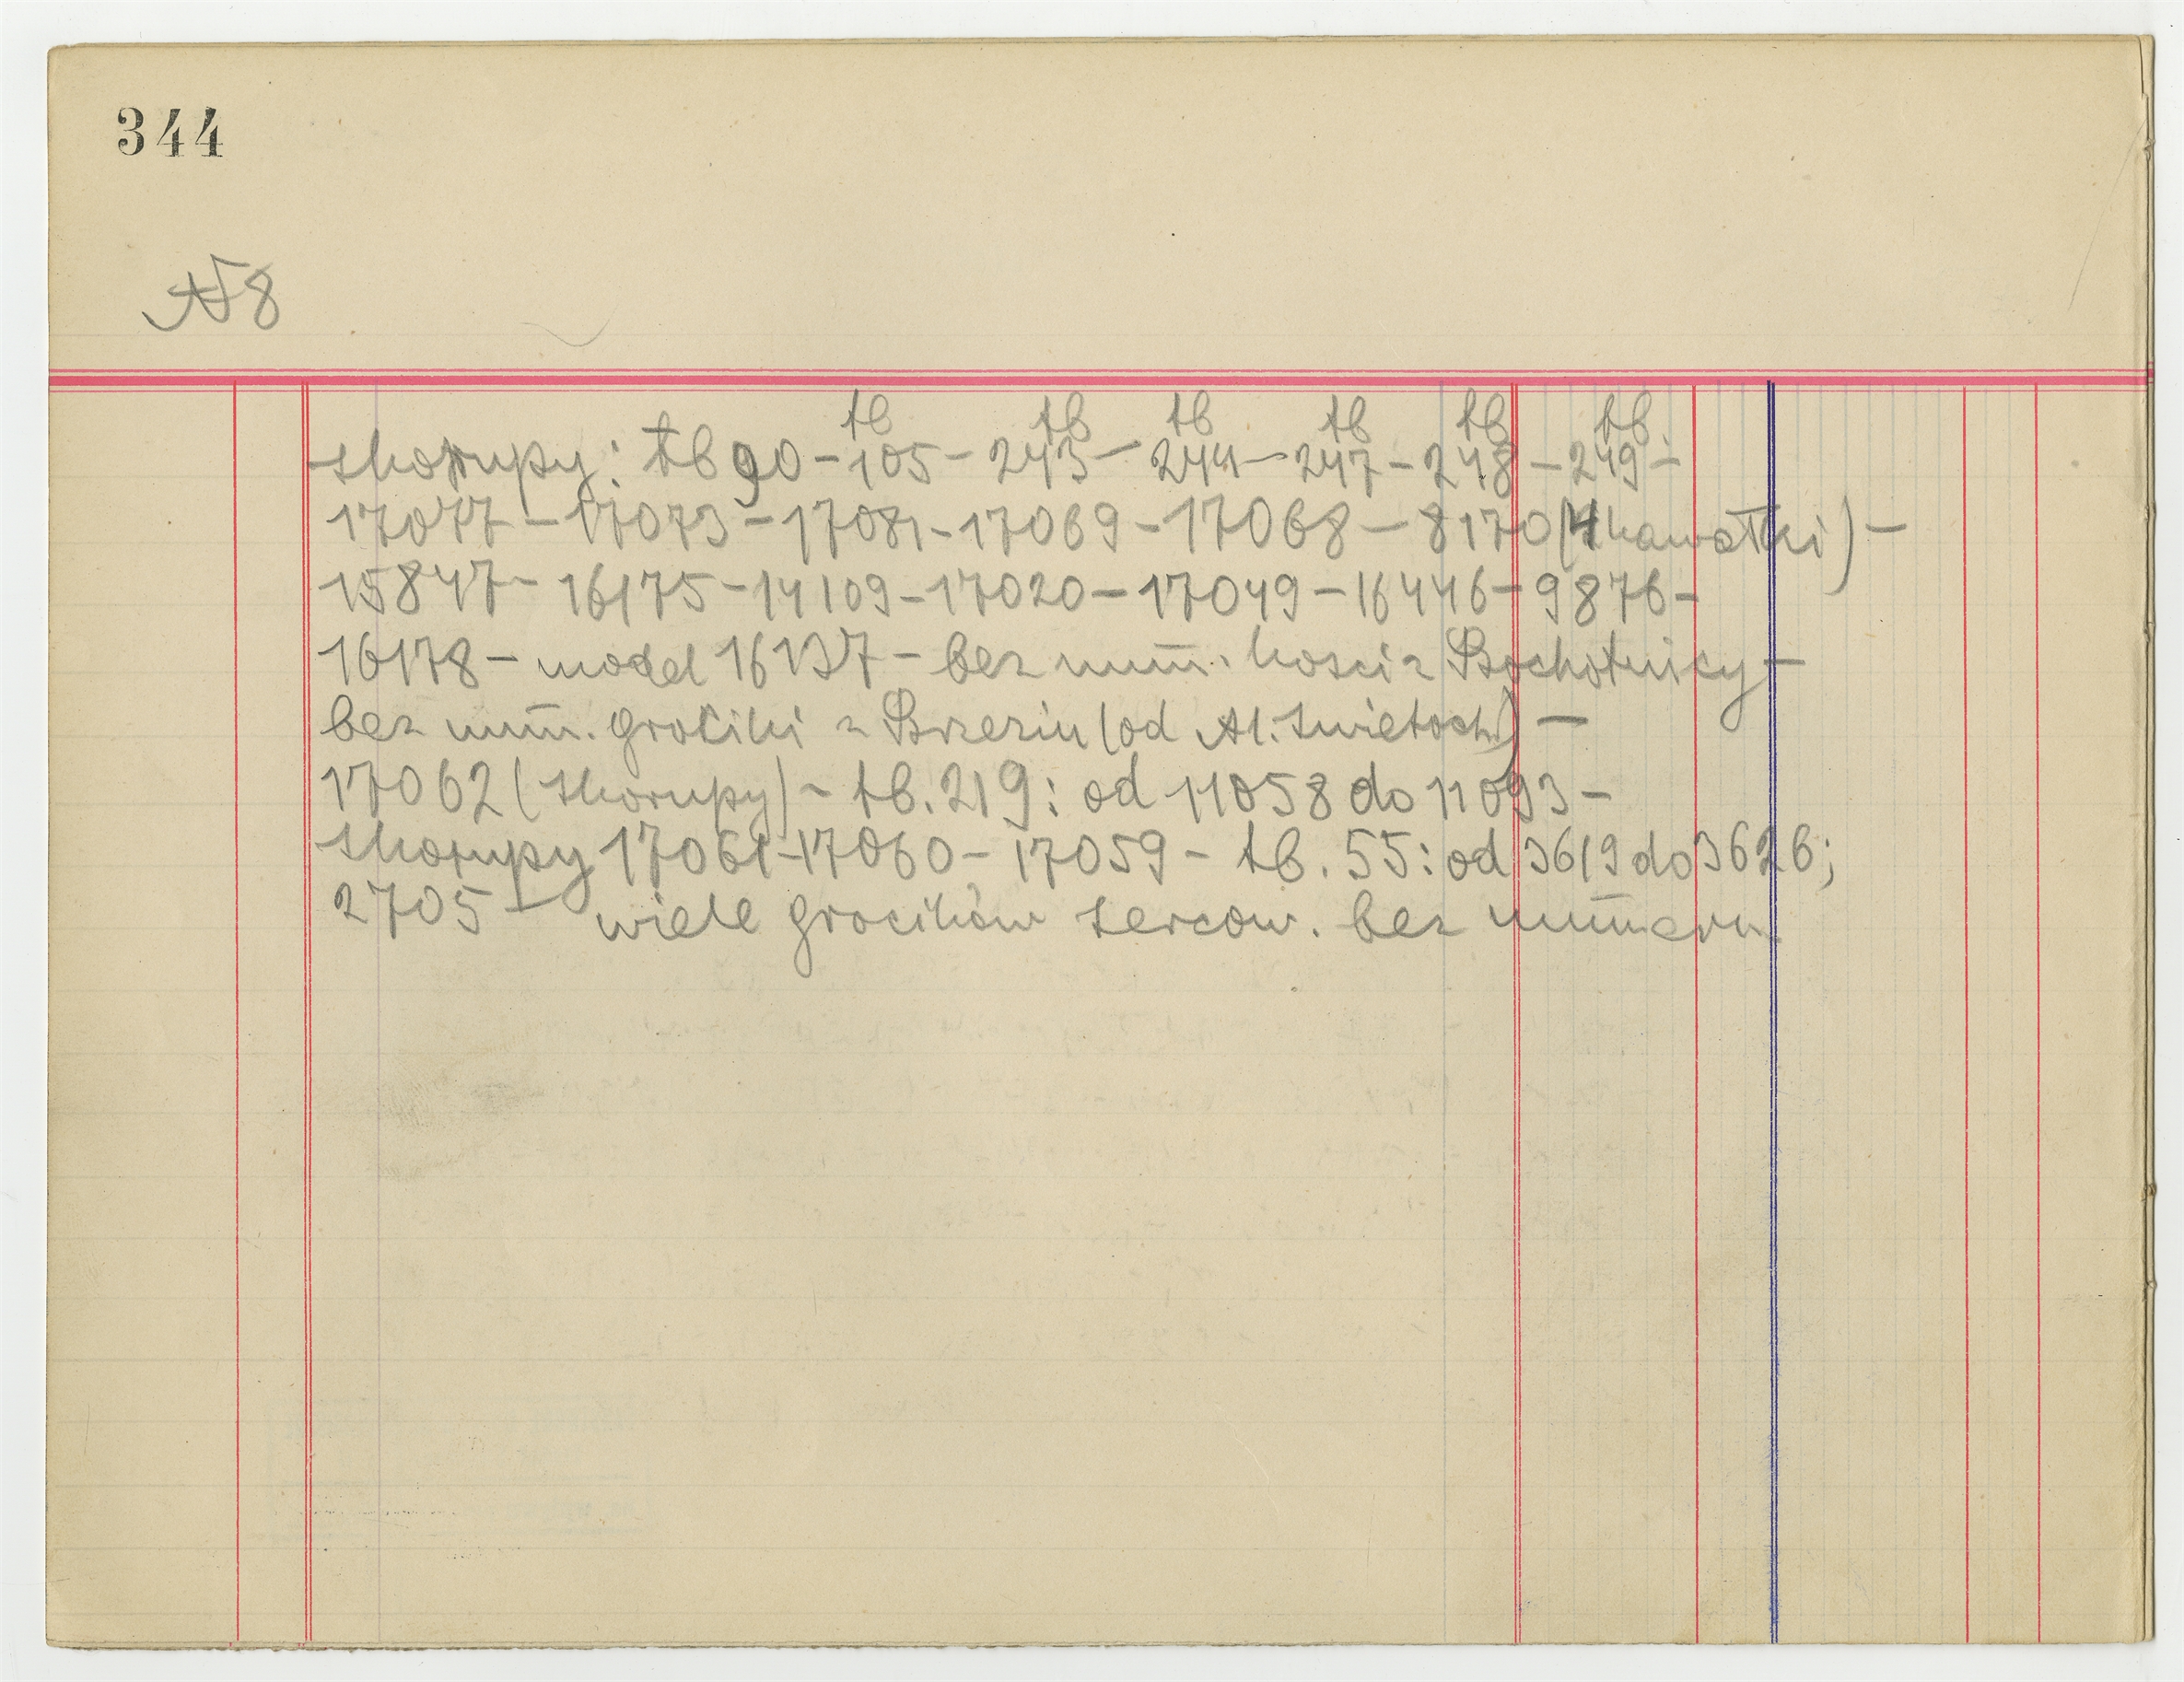 344
N8
tb tb tb tb tb tb
skorupy: tb 90 - 105 - 243 - 244 - 247 - 248 - 249 -
17077 - 17073 - 17081 - 17069 - 17068 - 8170 (4 kawałki) -
15847 - 16175 - 14109 - 17020 - 17049 - 16446 - 9876 -
16178 - model 16137 - bez num̅. kosci z Bochotnicy -
bez num̅. grociki z Brzezin (od Al. Swietoch) -
17062 (skorupy) - tb. 219: od 11058 do 11093 -
skorupy 17061 - 17060 - 17059 - tb. 55: od 3619 do 3626;
2705 - wiele grocików sercow. bez num̅eru.